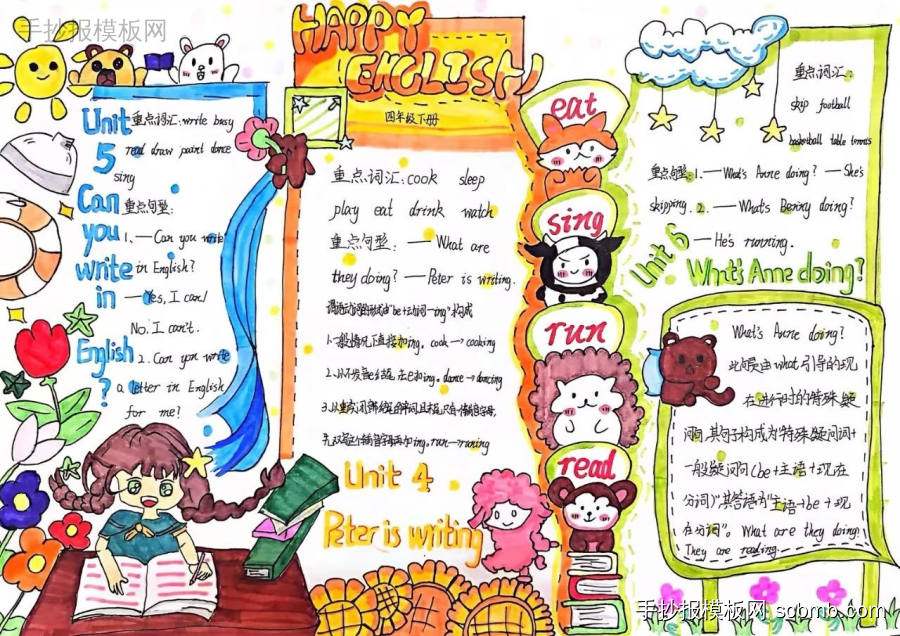 手抄报模板网
HAPPY
ENGLISH
四年级下册
Unit
5
Can
you
write
in
English
?
重点词汇:write busy
read draw paint dance
sing
重点句型:
1.—Can you write
in English?
—Yes, I can/
No. I can't.
2. Can you write
a letter in English
for me?
重点词汇:cook sleep
play eat drink watch
重点句型: — What are
they doing? — Peter is writing.
"be+动词—ing"构成
1.一般情况直接加ing. cook→cooking
2.以不发音e结尾,去e加ing. dance→dancing
3.
加ing. run→running
Unit 4
Peter is writing
eat
sing
run
read
重点词汇:
skip football
basketball table tennis
重点句型:1.—What's Anne doing? —She's
skipping. 2. —What's Benny doing?
—He's running.
Unit 6
What's Anne doing?
What's Anne doing?
此句是由what引导的现
在进行时的特殊疑
问句,其句子构成为"特殊疑问词+
一般疑问句(be+主语+现在
分词)",其答语为"主语+be+现
在分词"。What are they doing?
They are reading.
手抄报模板网 sqbmb.com